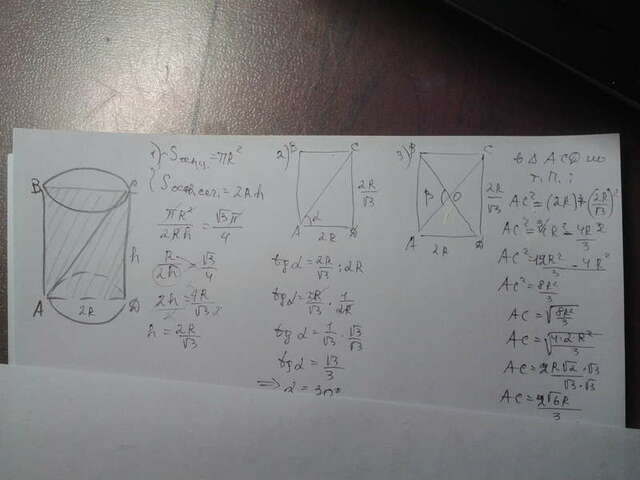 B
C
h
A
D
2R
1) Sосн.ц. = πR²
Sосев.сеч. = 2R·h
πR²/2Rh = √3π/4
R/2h = √3/4
2h = 4R/√3
h = 2R/√3
2)
B
C
2R/√3
α
A
2R
D
tgα = 2R/√3 : 2R
tgα = 2R/√3 · 1/2R
tgα = 1/√3 · √3/√3
tgα = √3/3
=> α = 30°
3)
B
C
β
O
2R/√3
A
2R
D
в Δ ACD по
т. П. :
AC² = (2R)² + (2R/√3)²
AC² = 4R² - 4R²/3
AC² = 12R² - 4R²/3
AC² = 8R²/3
AC = √8R²/3
AC = √4·2·R²/3
AC = 2R√2·√3/√3·√3
AC = 2√6R/3